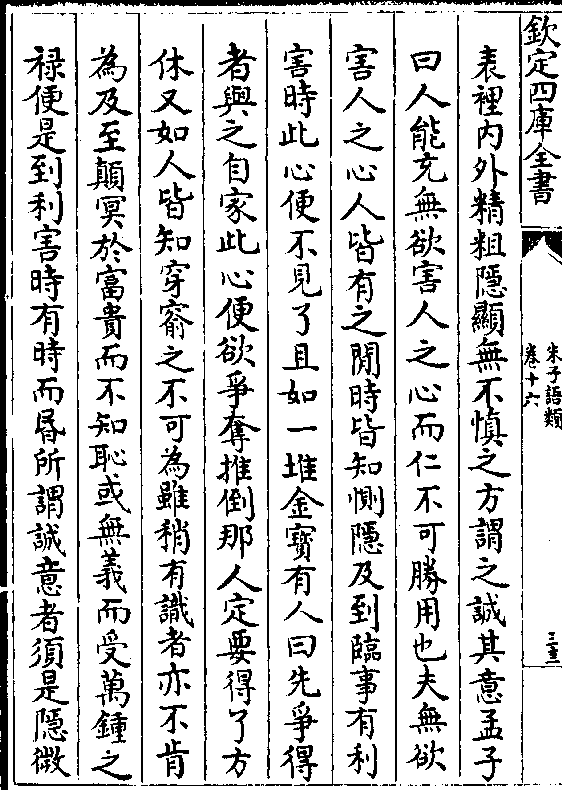 欽定四庫全書
朱子語類
卷十六
三十二
表裡内外精粗隱顯無不慎之方謂之誠其意孟子
曰人能充無欲害人之心而仁不可勝用也夫無欲
害人之心人皆有之閒時皆知惻隱及到臨事有利
害時此心便不見了且如一堆金寳有人曰先爭得
者與之自家此心便欲爭奪推倒那人定要得了方
休又如人皆知穿窬之不可為雖稍有識者亦不肯
為及至顛冥於富貴而不知恥或無義而受萬鍾之
禄便是到利害時有時而昬所謂誠意者須是隱微